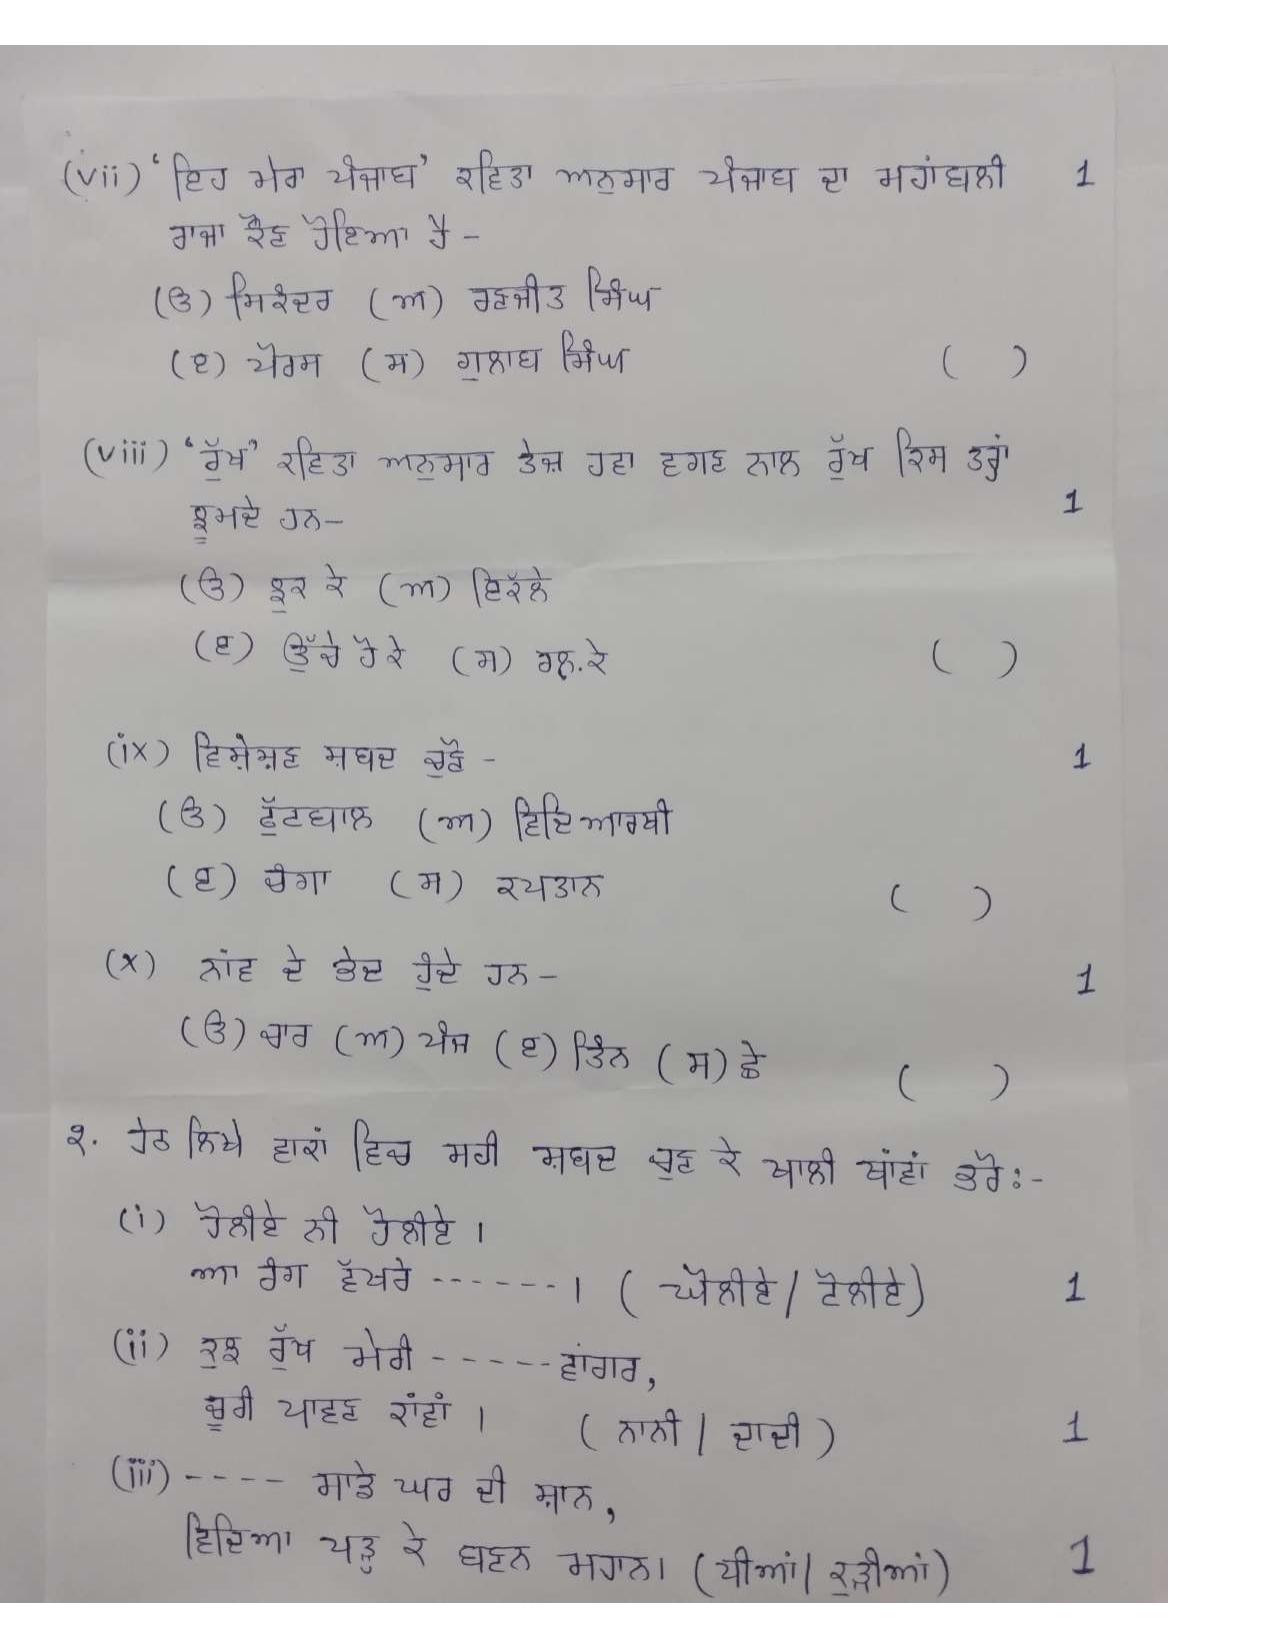 (vii) ‘ਇਹ ਮੇਰਾ ਪੰਜਾਬ’ ਕਵਿਤਾ ਅਨੁਸਾਰ ਪੰਜਾਬ ਦਾ ਮਹਾਂਬਲੀ 1
ਰਾਜਾ ਕੌਣ ਹੋਇਆ ਹੈ –
(ੳ) ਸਿਕੰਦਰ (ਅ) ਰਣਜੀਤ ਸਿੰਘ
(ੲ) ਪੋਰਸ (ਸ) ਗੁਲਾਬ ਸਿੰਘ ( )
(viii) ‘ਰੁੱਖ’ ਕਵਿਤਾ ਅਨੁਸਾਰ ਤੇਜ਼ ਹਵਾ ਵਗਣ ਨਾਲ ਰੁੱਖ ਕਿਸ ਤਰ੍ਹਾਂ
ਝੂਮਦੇ ਹਨ– 1
(ੳ) ਝੁਕ ਕੇ (ਅ) ਇਕੱਲੇ
(ੲ) ਉੱਚੇ ਹੋ ਕੇ (ਸ) ਰਲ.ਕੇ ( )
(ix) ਵਿਸ਼ੇਸ਼ਣ ਸ਼ਬਦ ਚੁਣੋ – 1
(ੳ) ਫੁੱਟਬਾਲ (ਅ) ਵਿਦਿਆਰਥੀ
(ੲ) ਚੰਗਾ (ਸ) ਕਪਤਾਨ ( )
(x) ਨਾਂਵ ਦੇ ਭੇਦ ਹੁੰਦੇ ਹਨ – 1
(ੳ) ਚਾਰ (ਅ) ਪੰਜ (ੲ) ਤਿੰਨ (ਸ) ਛੇ ( )
੨. ਹੇਠ ਲਿਖੇ ਵਾਕਾਂ ਵਿਚ ਸਹੀ ਸ਼ਬਦ ਚੁਣ ਕੇ ਖਾਲੀ ਥਾਂਵਾਂ ਭਰੋ :-
(i) ਹੋਲੀਏ ਨੀ ਹੋਲੀਏ ।
ਆ ਰੰਗ ਵੱਖਰੇ ------ । ( ਘੋਲੀਏ / ਟੋਲੀਏ) 1
(ii) ਕੁਝ ਰੁੱਖ ਮੇਰੀ ----- ਵਾਂਗਰ,
ਚੂਰੀ ਪਾਵਣ ਕਾਂਵਾਂ । ( ਨਾਨੀ / ਦਾਦੀ ) 1
(iii) ---- ਸਾਡੇ ਘਰ ਦੀ ਸ਼ਾਨ,
ਵਿਦਿਆ ਪੜ੍ਹ ਕੇ ਬਣਨ ਮਹਾਨ। (ਧੀਆਂ / ਕੁੜੀਆਂ) 1